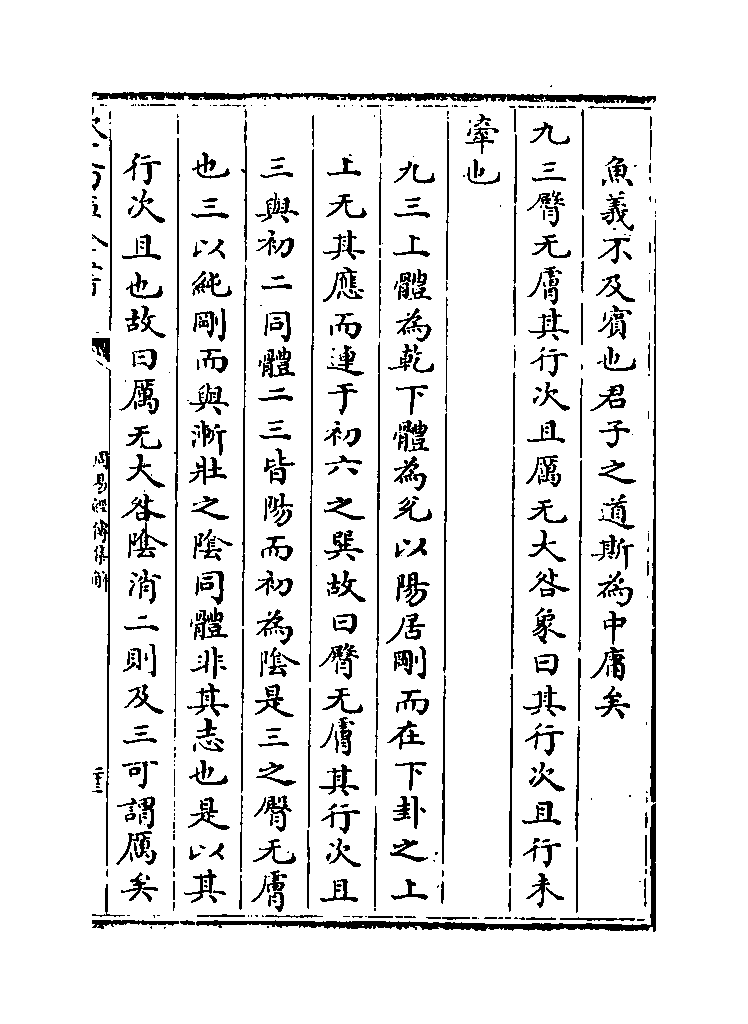 魚義不及賓也君子之道斯為中庸矣
九三臀无膚其行次且厲无大咎象曰其行次且行未
牽也
九三上體為乾下體為兊以陽居剛而在下卦之上
上无其應而連于初六之巽故曰臀无膚其行次且
三與初二同體二三皆陽而初為陰是三之臀无膚
也三以純剛而與漸壯之陰同體非其志也是以其
行次且也故曰厲无大咎陰消二則及三可謂厲矣
周易經傳集解